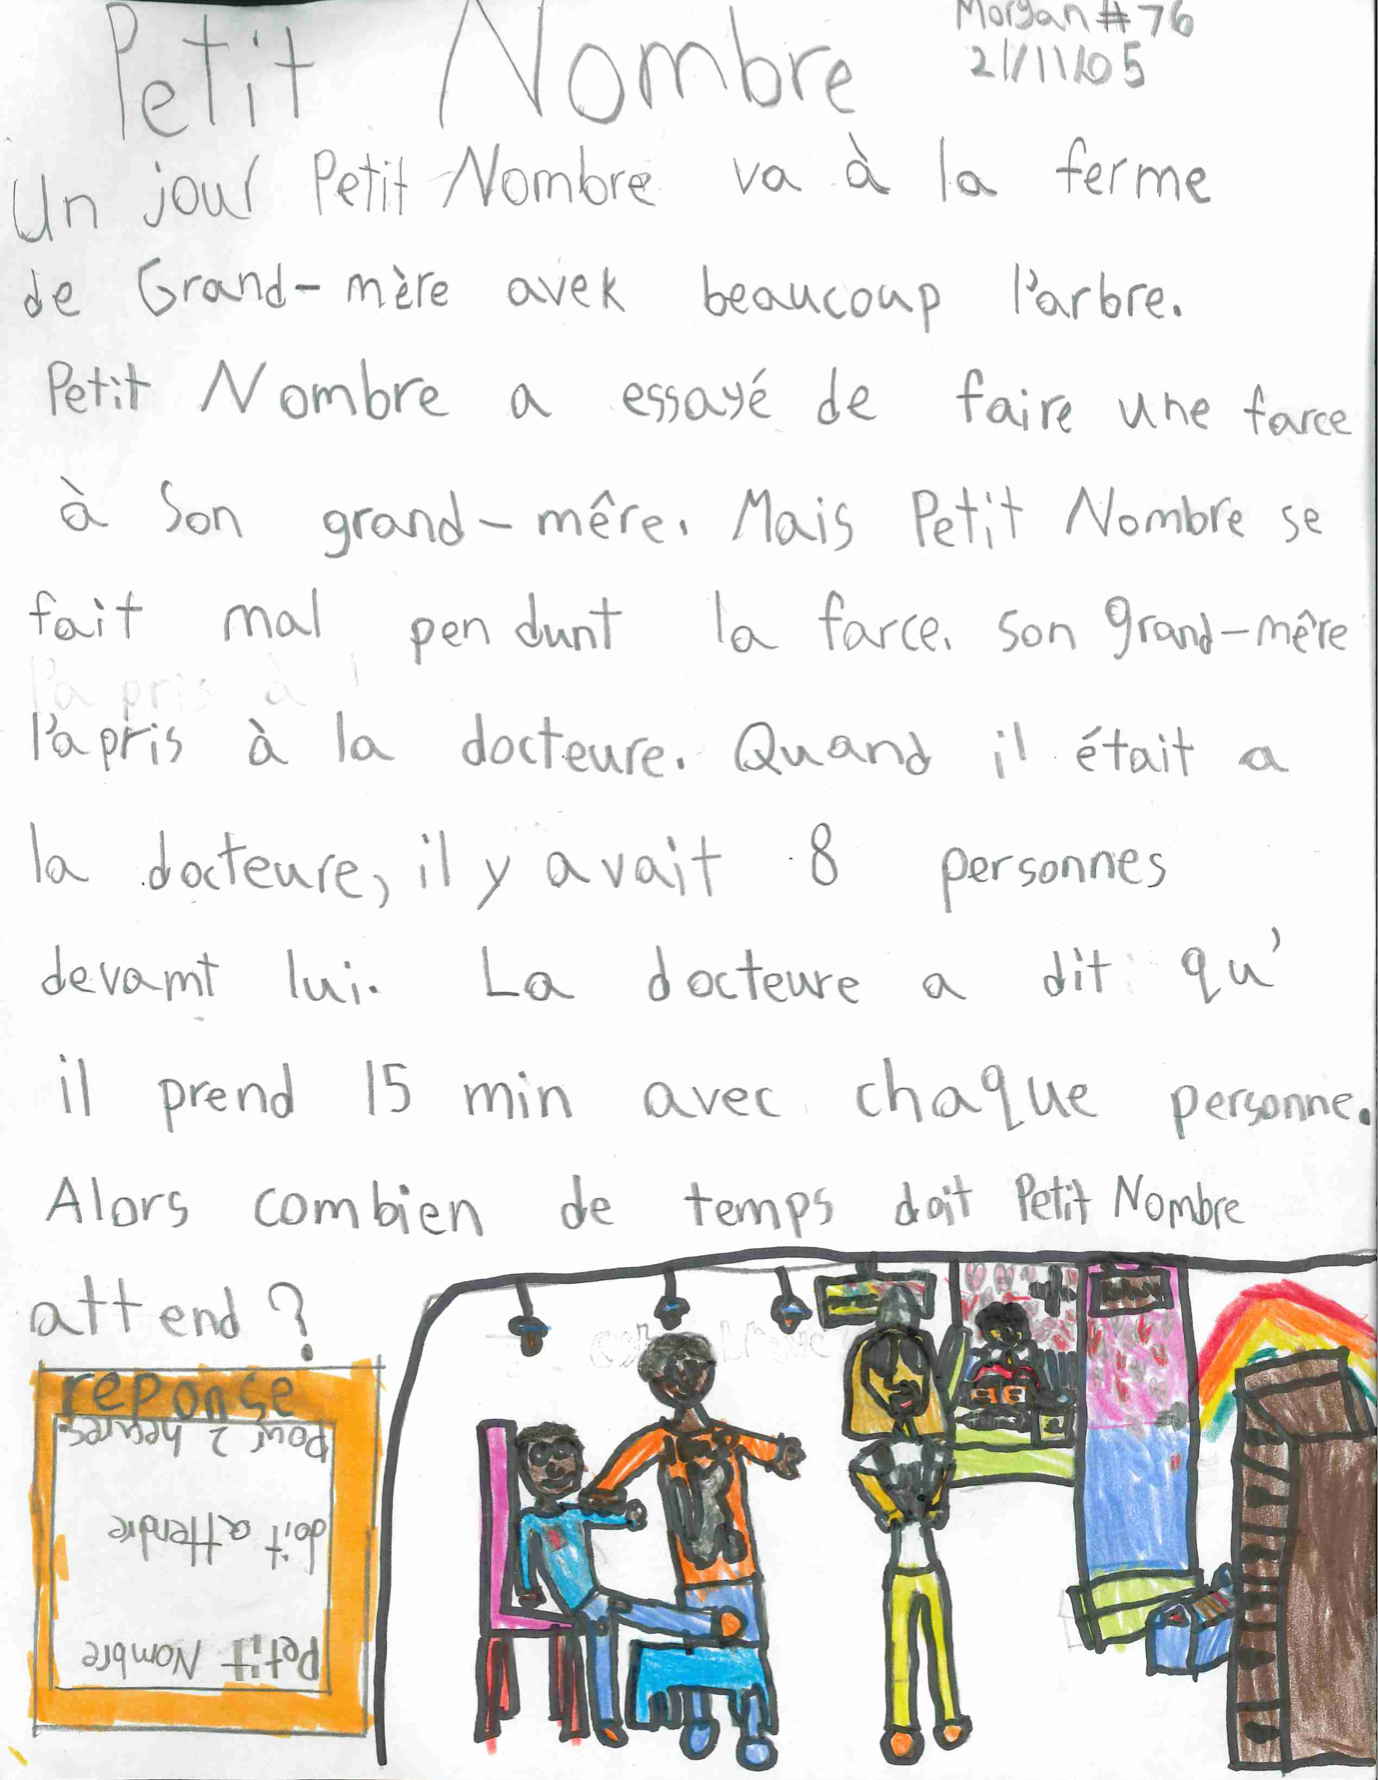 Petit Nombre
Morgan #76
21/11/05
Un jour Petit Nombre va à la ferme
de Grand-mère avek beaucoup l'arbre.
Petit Nombre a essayé de faire une farce
à Son grand-mêre. Mais Petit Nombre se
fait mal pendunt la farce. Son grand-mêre
l'a pris à la docteure. Quand il était a
la docteure, il y avait 8 personnes
devamt lui. La docteure a dit qu'
il prend 15 min avec chaque personne.
Alors combien de temps doit Petit Nombre
attend?
reponse
Petit Nombre
doit attendre
pour 2 heures.